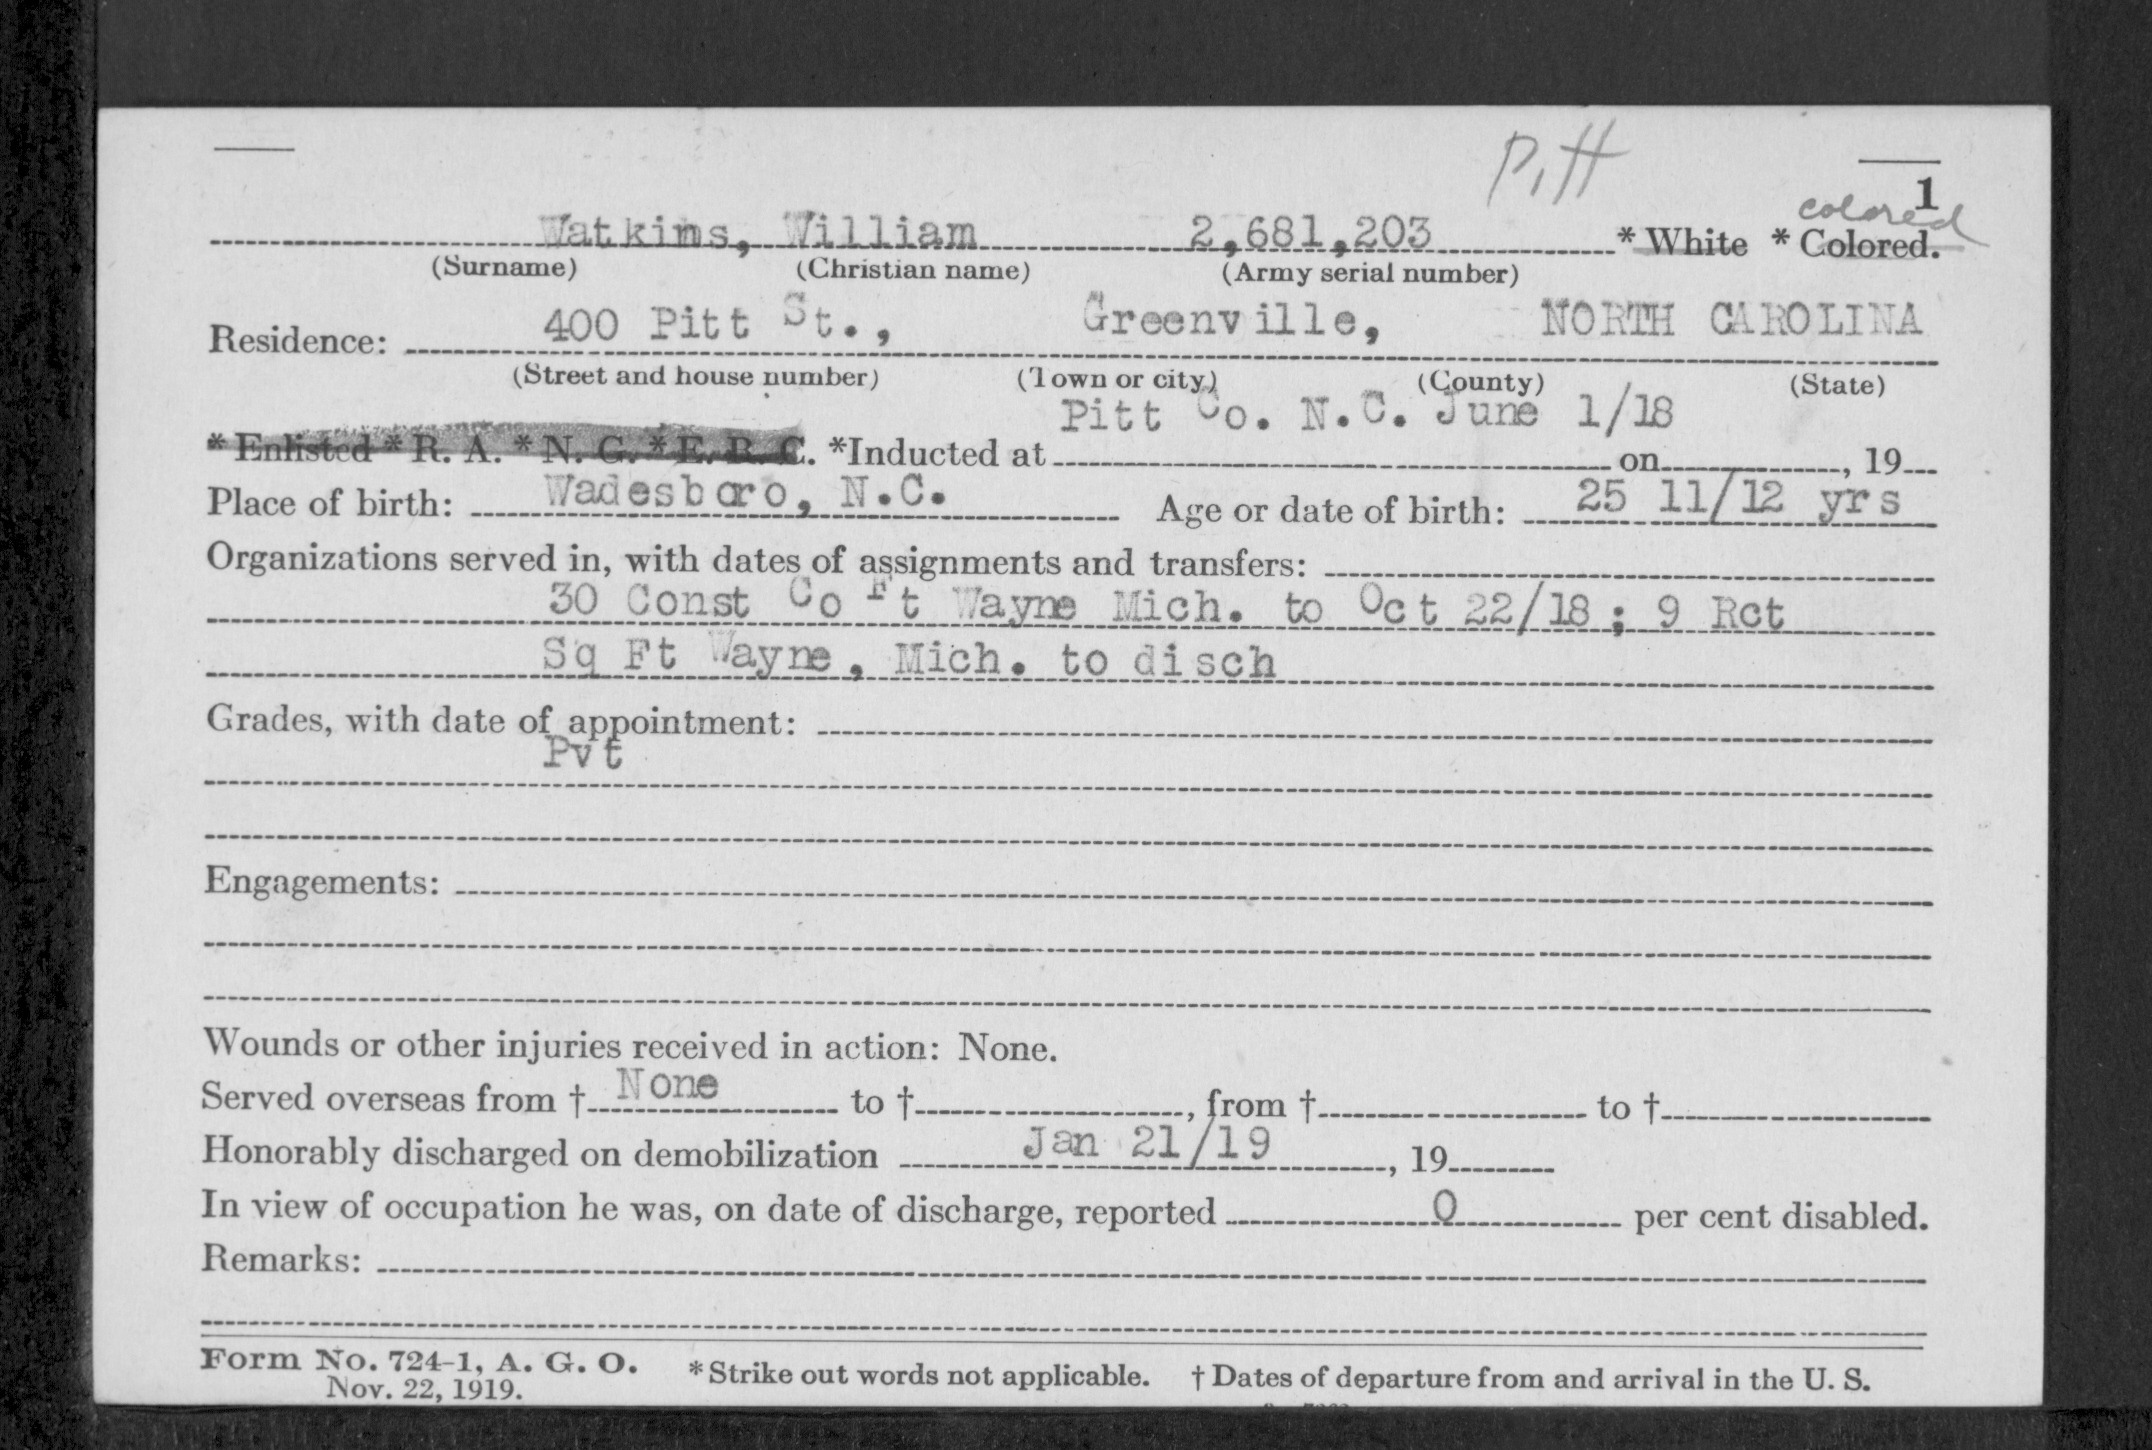 Pitt
1
colored
Watkins, William 2,681,203 * White * Colored.
(Surname) (Christian name) (Army serial number)
Residence: 400 Pitt St., Greenville, NORTH CAROLINA
(Street and house number) (Town or city) (County) (State)
Pitt Co. N.C. June 1/18
* Enlisted * R. A. * N. G. * E. R. C. *Inducted at on , 19
Place of birth: Wadesboro, N.C. Age or date of birth: 25 11/12 yrs
Organizations served in, with dates of assignments and transfers:
30 Const Co Ft Wayne Mich. to Oct 22/18; 9 Rct
Sq Ft Wayne, Mich. to disch
Grades, with date of appointment:
Pvt
Engagements:
Wounds or other injuries received in action: None.
Served overseas from † None to † , from † to †
Honorably discharged on demobilization Jan 21/19 , 19
In view of occupation he was, on date of discharge, reported 0 per cent disabled.
Remarks:
Form No. 724-1, A. G. O. * Strike out words not applicable. † Dates of departure from and arrival in the U. S.
Nov. 22, 1919.